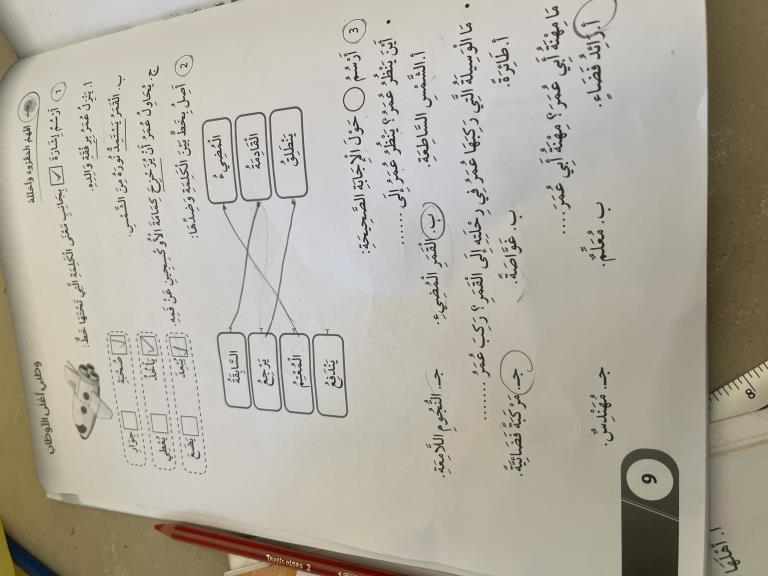 وطني أغلى الأوطان
أفهم المقروء وأحلله
1 أَرْسُمُ إِشَارَةَ ✓ بِجَانِبِ مَعْنَى الْكَلِمَةِ الَّتِي تَحْتَهَا خَطٌّ:
أ. يَنْزِلُ عُمَرُ بِرِفْقَةِ وَالِدِهِ. صُحْبَةِ جِوَارِ
ب. الْقَمَرُ يَسْتَمِدُّ نُورَهُ مِنَ الشَّمْسِ. يَأْخُذُ يُعْطِي
ج. يُحَاوِلُ عُمَرُ أَنْ يُزَحْزِحَ كِمَامَةَ الْأُوكْسِجِينِ عَنْ فَمِهِ. يُبْعِدَ يَضَعَ
2 أَصِلُ بِخَطٍّ بَيْنَ الْكَلِمَةِ وَضِدِّهَا:
الْمُضِيءُ السَّابِقَةُ
الْقَادِمَةُ يَرْجِعُ
يَنْطَلِقُ الْمُعْتِمُ
يَنْدَفِعُ
3 أَرْسُمُ ○ حَوْلَ الْإِجَابَةِ الصَّحِيحَةِ:
• أَيْنَ يَنْظُرُ عُمَرُ؟ يَنْظُرُ عُمَرُ إِلَى ......
أ. الشَّمْسِ السَّاطِعَةِ. ب. الْقَمَرِ الْمُضِيءِ. جـ. النُّجُومِ اللَّامِعَةِ.
• مَا الْوَسِيلَةُ الَّتِي رَكِبَهَا عُمَرُ فِي رِحْلَتِهِ إِلَى الْقَمَرِ؟ رَكِبَ عُمَرُ ......
أ. طَائِرَةً. ب. غَوَّاصَةً. جـ. مَرْكَبَةً فَضَائِيَّةً.
مَا مِهْنَةُ أَبِي عُمَرَ؟ مِهْنَةُ أَبِي عُمَرَ .....
أ. رَائِدُ فَضَاءٍ. ب. مُعَلِّمٌ. جـ. مُهَنْدِسٌ.
9
Tropicolors 2
8